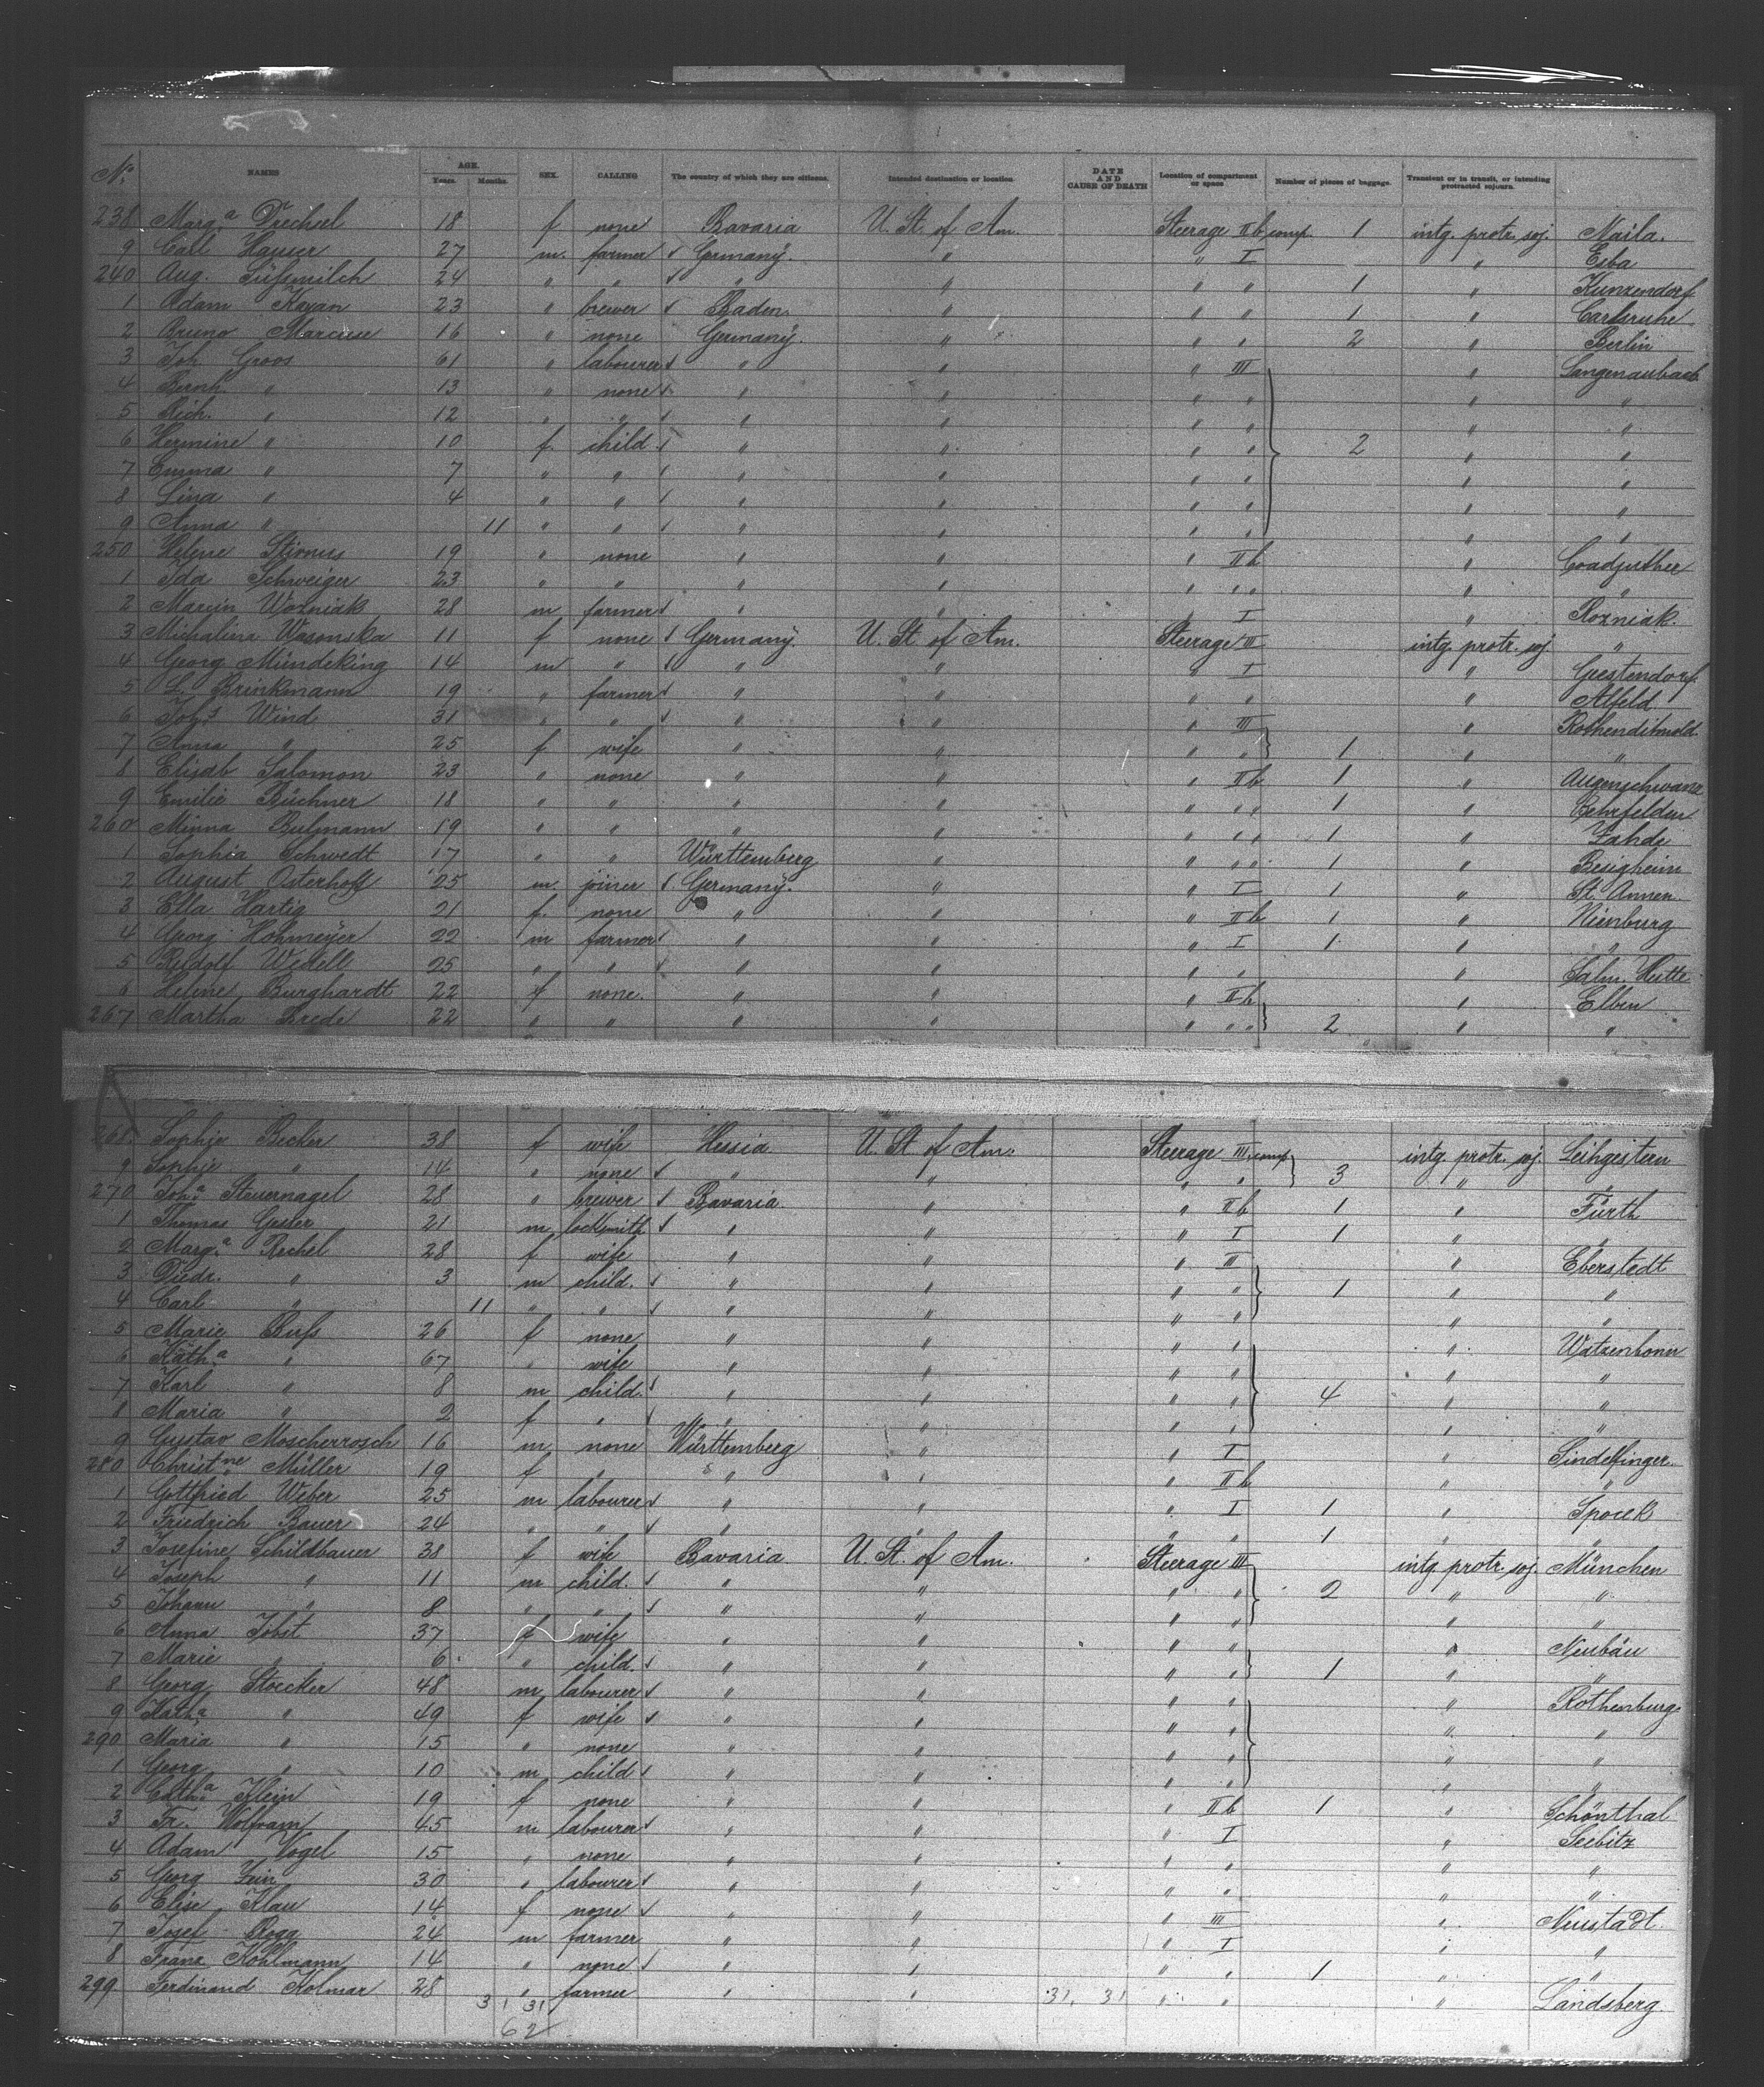 No. NAMES AGE. Years. Months. SEX. CALLING The country of which they are citizens. Intended destination or location. DATE AND CAUSE OF DEATH Location of compartment or space. Number of pieces of baggage. Transient or in transit, or intending protracted sojourn.
238 Marg.a Drechsel 18 f none Bavaria U. St. of Am. Steerage II b comp. 1 intg. protr. soj. Naila.
9 Carl Hauser 27 m. farmer Germany. " " I "
240 Aug. Süssmilch 24 " " " " " " 1 " Kunzendorf
1 Adam Kayan 23 " brewer Baden " " " 1 " Carlsruhe
2 Bruno Marcuse 16 " none Germany. " " " 2 " Berlin
3 Joh. Groos 61 " labourer " " " III " Langenaubach
4 Bernh. " 13 " none " " " " " "
5 Rich. " 12 " " " " " " " "
6 Hermine " 10 f. child " " " " 2 " "
7 Emma " 7 " " " " " " " "
8 Lina " 4 " " " " " " " "
9 Anna " 11 " " " " " " " "
250 Helene Stirnus 19 " none " " " II b " Coadjuthee
1 Ida Schweiger 23 " " " " " " " " "
2 Marcin Wozniak 28 m farmer " " " I " Rozniak
3 Michalina Wasonska 11 f none Germany. U. St. of Am. Steerage III intg. protr. soj "
4 Georg Mündeking 14 m " " " " I " Geestendorf
5 L. Brinkmann 19 " farmer " " " " " Alfeld
6 Johs Wind 31 " " " " " III " Rothenditmold
7 Anna " 25 f wife " " " " 1 " "
8 Elisab Salomon 23 " none " " " II b 1 " Augenschwand
9 Emilie Büchner 18 " " " " " " " 1 " Gehrfelden
260 Minna Bulmann 19 " " " " " " " 1 " Zahde
1 Sophia Schwedt 17 " " Württemberg " " " " 1 " Besigheim
2 August Osterhoff 25 m. joiner Germany. " " I 1 " St. Annen
3 Ella Hartig 21 f. none " " " II b 1 " Nienburg
4 Georg Hohmeyer 22 m farmer " " " I 1 " "
5 Rudolf Wedell 25 " " " " " " " Salm. Hutte
6 Helene Burghardt 22 f none. " " " II b " Elben
267 Martha Brede 22 " " " " " " " 2 " "
268 Sophie Becker 38 f wife Hessia U. St of Am. Steerage III comp intg protr. soj. Leihgestern
9 Sophie " 14 " none " " " " 3 " "
270 Joh.a Steuernagel 28 " brewer Bavaria " " II b 1 " Fürth
1 Thomas Gester 21 m locksmith " " " I 1 " "
2 Marg.a Rechel 28 f wife " " " III " Eberstedt
3 Diedr. " 3 m child. " " " " 1 " "
4 Carl " 11 " " " " " " " "
5 Marie Buss 26 f none " " " " " Watzenborn
6 Kath.a " 67 " wife " " " " " "
7 Karl " 8 m child. " " " " 4 " "
8 Maria " 2 f " " " " " " "
9 Gustav Moscherrosch 16 m none Württemberg " " I " Sindelfingen
280 Christne Müller 19 f " " " " II b " "
1 Gottfried Weber 25 m labourer " " " I 1 " Spock
2 Friedrich Bauer 24 " " " " " " 1 " "
3 Josefine Schildbauer 38 f wife Bavaria U. St. of Am. Steerage III intg. protr. soj. München
4 Joseph " 11 m child. " " " " 2 " "
5 Johann " 8 " " " " " " " "
6 Anna Jobst 37 f wife " " " " " Neubäu
7 Marie " 6 " child. " " " " 1 " "
8 Georg Stoecker 48 m labourer " " " " " Rothenburg
9 Kath.a " 49 f wife " " " " " "
290 Maria " 15 " none " " " " " "
1 Georg " 10 m child " " " " " "
2 Cath.a Klein 19 f none " " " II b 1 " Schönthal
3 Fr. Wolfram 45 m labourer " " " I " Seebitz
4 Adam Vogel 15 " none " " " " " "
5 Georg Fein 30 " labourer " " " " " "
6 Elise Klau 14 f none " " " III " Neustadt
7 Josef Rogg 24 m farmer " " " I " "
8 Franz Kohlmann 14 " none " " " " 1 " "
299 Ferdinand Kolmar 28 " farmer " " " " " Landsberg
31 31 31, 31
62